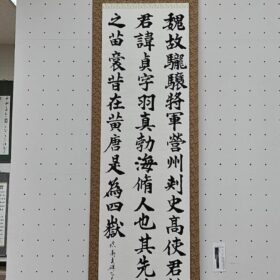 魏故驪驤將軍營州刺史高使君
君諱貞字羽真勃海脩人也其先
之苗裔昔在黄唐是為四嶽